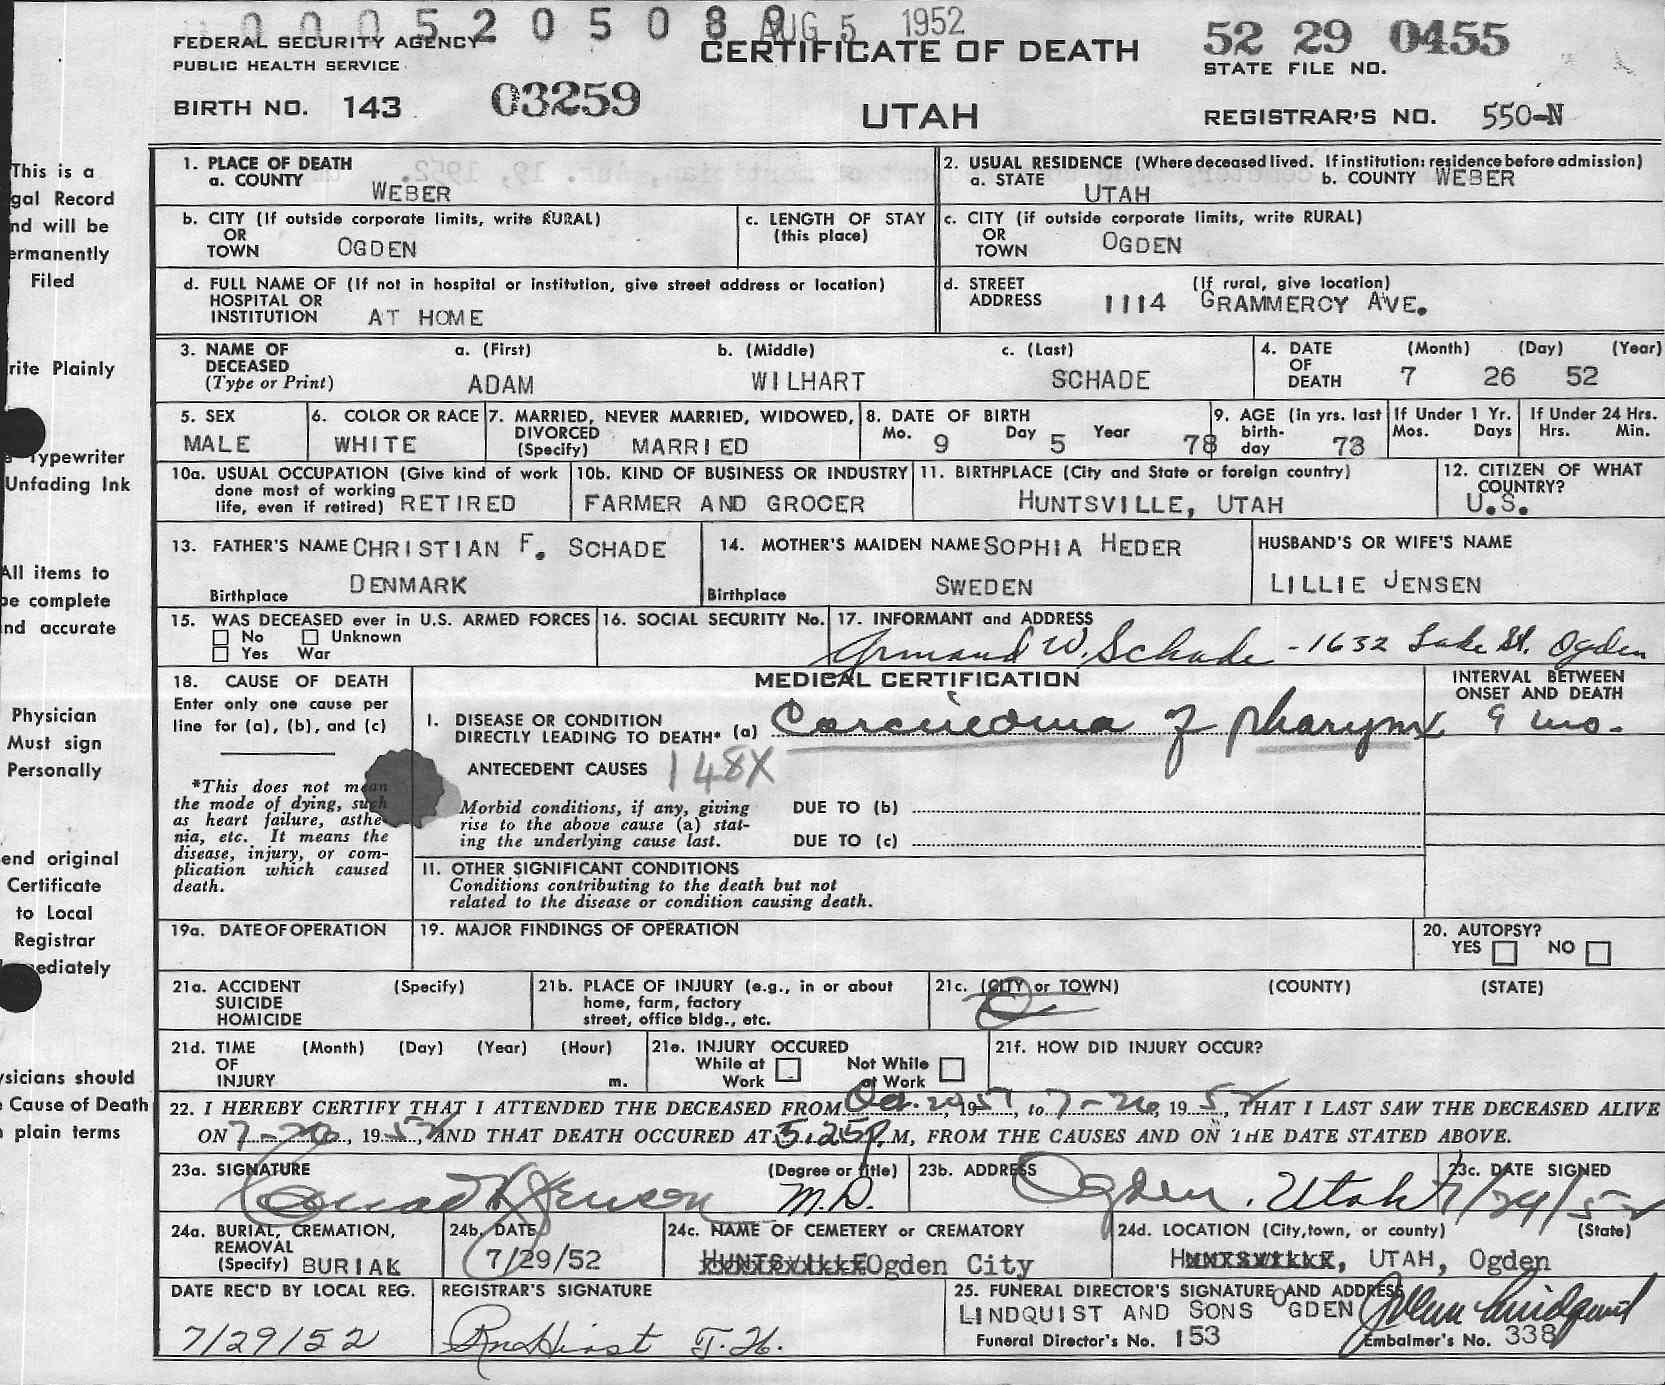 00052050 89 AUG 5 1952
FEDERAL SECURITY AGENCY
PUBLIC HEALTH SERVICE
CERTIFICATE OF DEATH
52 29 0455
STATE FILE NO.
BIRTH NO. 143 03259
UTAH
REGISTRAR'S NO. 550-N
This is a
gal Record
nd will be
ermanently
Filed
rite Plainly
Typewriter
Unfading Ink
All items to
be complete
nd accurate
Physician
Must sign
Personally
end original
Certificate
to Local
Registrar
mediately
ysicians should
Cause of Death
plain terms
1. PLACE OF DEATH
a. COUNTY WEBER
2. USUAL RESIDENCE (Where deceased lived. If institution: residence before admission)
a. STATE UTAH b. COUNTY WEBER
b. CITY (If outside corporate limits, write RURAL)
OR
TOWN OGDEN
c. LENGTH OF STAY
(this place)
c. CITY (if outside corporate limits, write RURAL)
OR
TOWN OGDEN
d. FULL NAME OF (If not in hospital or institution, give street address or location)
HOSPITAL OR
INSTITUTION AT HOME
d. STREET (If rural, give location)
ADDRESS 1114 GRAMMERCY AVE.
3. NAME OF a. (First) b. (Middle) c. (Last)
DECEASED
(Type or Print) ADAM WILHART SCHADE
4. DATE (Month) (Day) (Year)
OF
DEATH 7 26 52
5. SEX
MALE
6. COLOR OR RACE
WHITE
7. MARRIED, NEVER MARRIED, WIDOWED,
DIVORCED
(Specify) MARRIED
8. DATE OF BIRTH
Mo. 9 Day 5 Year 78
9. AGE (in yrs. last
birth-
day 73
If Under 1 Yr.
Mos. Days
If Under 24 Hrs.
Hrs. Min.
10a. USUAL OCCUPATION (Give kind of work
done most of working
life, even if retired) RETIRED
10b. KIND OF BUSINESS OR INDUSTRY
FARMER AND GROCER
11. BIRTHPLACE (City and State or foreign country)
HUNTSVILLE, UTAH
12. CITIZEN OF WHAT
COUNTRY?
U.S.
13. FATHER'S NAME CHRISTIAN F. SCHADE
Birthplace DENMARK
14. MOTHER'S MAIDEN NAME SOPHIA HEDER
Birthplace SWEDEN
HUSBAND'S OR WIFE'S NAME
LILLIE JENSEN
15. WAS DECEASED ever in U.S. ARMED FORCES
No Unknown
Yes War
16. SOCIAL SECURITY No.
17. INFORMANT and ADDRESS
Armand W. Schade - 1632 Lake St. Ogden
18. CAUSE OF DEATH
Enter only one cause per
line for (a), (b), and (c)
*This does not mean
the mode of dying, such
as heart failure, asthe-
nia, etc. It means the
disease, injury, or com-
plication which caused
death.
MEDICAL CERTIFICATION
INTERVAL BETWEEN
ONSET AND DEATH
I. DISEASE OR CONDITION
DIRECTLY LEADING TO DEATH* (a) Carcinoma of pharynx 9 mo.
ANTECEDENT CAUSES 148X
Morbid conditions, if any, giving
rise to the above cause (a) stat-
ing the underlying cause last.
DUE TO (b)
DUE TO (c)
II. OTHER SIGNIFICANT CONDITIONS
Conditions contributing to the death but not
related to the disease or condition causing death.
19a. DATE OF OPERATION
19. MAJOR FINDINGS OF OPERATION
20. AUTOPSY?
YES NO
21a. ACCIDENT (Specify)
SUICIDE
HOMICIDE
21b. PLACE OF INJURY (e.g., in or about
home, farm, factory
street, office bldg., etc.
21c. (CITY or TOWN) (COUNTY) (STATE)
21d. TIME (Month) (Day) (Year) (Hour)
OF
INJURY m.
21e. INJURY OCCURED
While at Work
Not While at Work
21f. HOW DID INJURY OCCUR?
22. I HEREBY CERTIFY THAT I ATTENDED THE DECEASED FROM Oct. 29, 1951, to 7-26, 1952, THAT I LAST SAW THE DECEASED ALIVE
ON 7-26, 1952, AND THAT DEATH OCCURED AT 5:25 P.M, FROM THE CAUSES AND ON THE DATE STATED ABOVE.
23a. SIGNATURE (Degree or title)
Conrad H Jensen M.D.
23b. ADDRESS
Ogden, Utah
23c. DATE SIGNED
7/29/52
24a. BURIAL, CREMATION,
REMOVAL
(Specify) BURIAL
24b. DATE
7/29/52
24c. NAME OF CEMETERY or CREMATORY
HUNTSVILLE Ogden City
24d. LOCATION (City, town, or county) (State)
HUNTSVILLE, UTAH, Ogden
DATE REC'D BY LOCAL REG.
7/29/52
REGISTRAR'S SIGNATURE
25. FUNERAL DIRECTOR'S SIGNATURE AND ADDRESS
LINDQUIST AND SONS OGDEN John Lindquist
Funeral Director's No. 153 Embalmer's No. 338